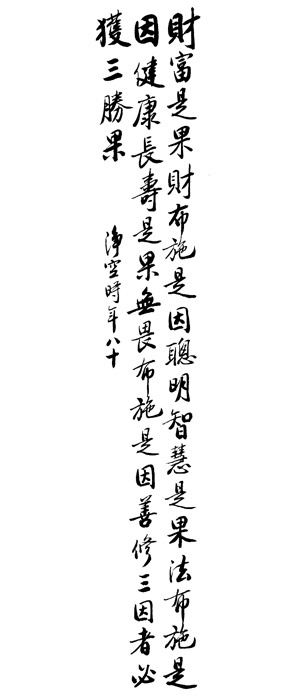 財富是果財布施是因聰明智慧是果法布施是
因健康長壽是果無畏布施是因善修三因者必
獲三勝果
淨空時年八十